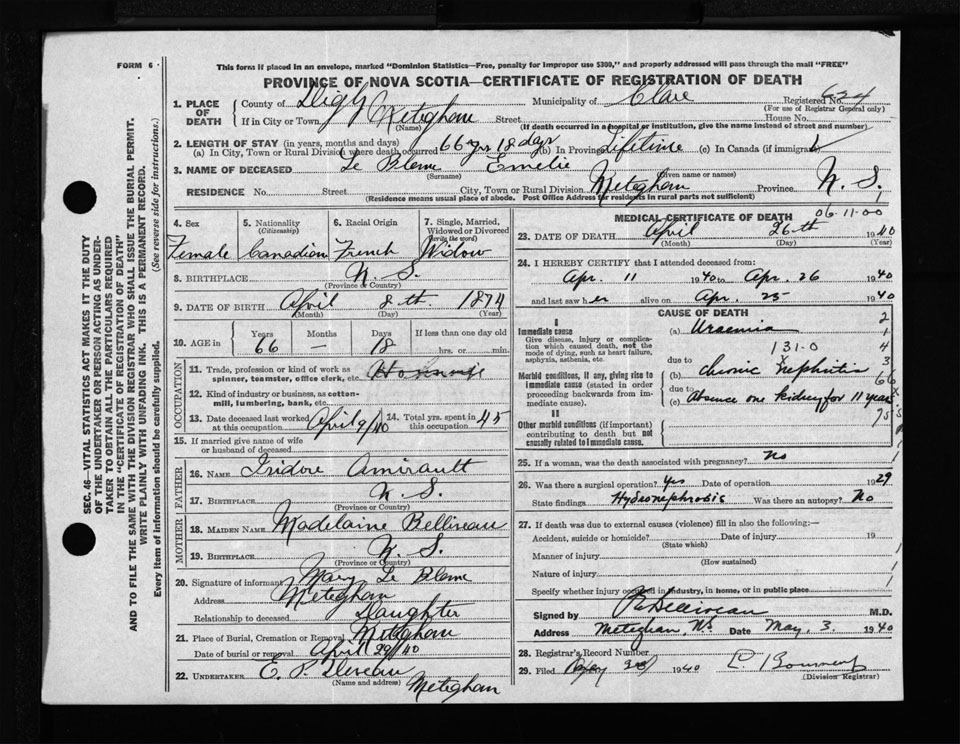 FORM 6
This form if placed in an envelope, marked "Dominion Statistics—Free, penalty for improper use $300," and properly addressed will pass through the mail "FREE"
PROVINCE OF NOVA SCOTIA—CERTIFICATE OF REGISTRATION OF DEATH
1. PLACE OF DEATH County of Digby Municipality of Clare Registered No. 634
(For use of Registrar General only)
If in City or Town Meteghan Street House No.
(Name) (If death occurred in a hospital or institution, give the name instead of street and number)
2. LENGTH OF STAY (in years, months and days)
(a) In City, Town or Rural Division where death occurred 66 yrs 18 days (b) In Province Lifetime (c) In Canada (if immigrant)
3. NAME OF DECEASED Le Blanc Emelie
(Surname) (Given name or names)
RESIDENCE No. Street City, Town or Rural Division Meteghan Province N. S.
(Residence means usual place of abode. Post Office Address for residents in rural parts not sufficient)
4. Sex 5. Nationality (Citizenship) 6. Racial Origin 7. Single, Married, Widowed or Divorced (Write the word)
Female Canadian French Widow
8. BIRTHPLACE N. S.
(Province or Country)
9. DATE OF BIRTH April 8th. 1874
(Month) (Day) (Year)
10. AGE in Years Months Days If less than one day old
66 — 18 hrs. or min.
OCCUPATION
11. Trade, profession or kind of work as spinner, teamster, office clerk, etc.
12. Kind of industry or business, as cotton-mill, lumbering, bank, etc.
13. Date deceased last worked at this occupation April 9/40 14. Total yrs. spent in this occupation 45
15. If married give name of wife or husband of deceased
FATHER
16. NAME Isidore Amirault
17. BIRTHPLACE N. S.
(Province or Country)
MOTHER
18. MAIDEN NAME Madelaine Belliveau
19. BIRTHPLACE N. S.
(Province or Country)
20. Signature of informant Mary Le Blanc
Address Meteghan
Relationship to deceased Daughter
21. Place of Burial, Cremation or Removal Meteghan
Date of burial or removal April 29/40
22. UNDERTAKER E. P.
(Name and address) Meteghan
MEDICAL CERTIFICATE OF DEATH 06-11-00
23. DATE OF DEATH April 26th 1940
(Month) (Day) (Year)
24. I HEREBY CERTIFY that I attended deceased from:
Apr. 11 1940 to Apr. 26 1940
and last saw her alive on Apr. 25 1940
CAUSE OF DEATH
I
Immediate cause (a) Uraemia
Give disease, injury or complication which caused death, not the mode of dying, such as heart failure, asphyxia, asthenia, etc.
131.0
due to
Morbid conditions, if any, giving rise to immediate cause (stated in order proceeding backwards from immediate cause). (b) Chronic Nephritis
due to
(c) Absence one kidney for 11 years
II
Other morbid conditions (if important) contributing to death but not causally related to immediate cause.
25. If a woman, was the death associated with pregnancy? No
26. Was there a surgical operation? Yes Date of operation 1929
State findings Hydronephrosis Was there an autopsy? No
27. If death was due to external causes (violence) fill in also the following:—
Accident, suicide or homicide? Date of injury 19
(State which)
Manner of injury
(How sustained)
Nature of injury
Specify whether injury occurred in industry, in home, or in public place
Signed by Belliveau M.D.
Address Meteghan, N.S. Date May. 3. 1940
28. Registrar's Record Number
29. Filed 1940
(Division Registrar)
SEC. 46—VITAL STATISTICS ACT MAKES IT THE DUTY
OF THE UNDERTAKER OR PERSON ACTING AS UNDER-
TAKER TO OBTAIN ALL THE PARTICULARS REQUIRED
IN THE "CERTIFICATE OF REGISTRATION OF DEATH"
AND TO FILE THE SAME WITH THE DIVISION REGISTRAR WHO SHALL ISSUE THE BURIAL PERMIT.
WRITE PLAINLY WITH UNFADING INK. THIS IS A PERMANENT RECORD.
Every item of information should be carefully supplied. (See reverse side for instructions.)